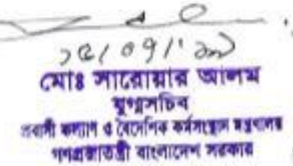 ১৫/০৭/'২০
মোঃ সারোয়ার আলম
যুগ্মসচিব
প্রবাসী কল্যাণ ও বৈদেশিক কর্মসংস্থান মন্ত্রণালয়
গণপ্রজাতন্ত্রী বাংলাদেশ সরকার